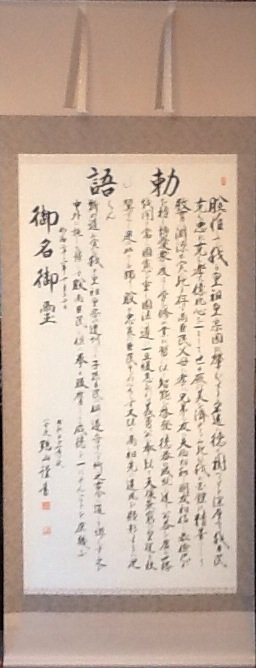 勅語
朕惟フニ我カ皇祖皇宗國ヲ肇ムルコト宏遠ニ徳ヲ樹ツルコト深厚ナリ我カ臣民
克ク忠ニ克ク孝ニ億兆心ヲ一ニシテ世々厥ノ美ヲ濟セルハ此レ我カ國體ノ精華ニシテ
教育ノ淵源亦實ニ此ニ存ス爾臣民父母ニ孝ニ兄弟ニ友ニ夫婦相和シ朋友相信シ恭儉己レ
ヲ持シ博愛衆ニ及ホシ學ヲ修メ業ヲ習ヒ以テ智能ヲ啓發シ徳器ヲ成就シ進テ公益ヲ廣メ世務
ヲ開キ常ニ國憲ヲ重シ國法ニ遵ヒ一旦緩急アレハ義勇公ニ奉シ以テ天壤無窮ノ皇運ヲ扶
翼スヘシ是ノ如キハ獨リ朕カ忠良ノ臣民タルノミナラス又以テ爾祖先ノ遺風ヲ顯彰スルニ足
ラン
斯ノ道ハ實ニ我カ皇祖皇宗ノ遺訓ニシテ子孫臣民ノ倶ニ遵守スヘキ所之ヲ古今ニ通シテ謬ラス之ヲ
中外ニ施シテ悖ラス朕爾臣民ト倶ニ拳々服膺シテ咸其徳ヲ一ニセンコトヲ庶幾フ
明治二十三年十月三十日
御名御璽
謹書